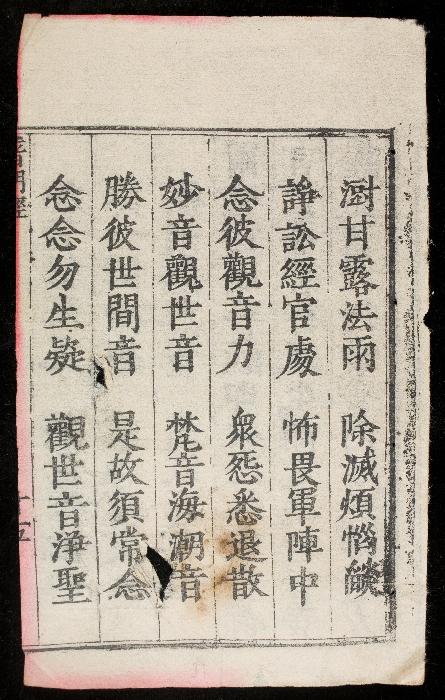 澍甘露法雨 除滅煩惱燄
諍訟經官處 怖畏軍陣中
念彼觀音力 衆怨悉退散
妙音觀世音 梵音海潮音
勝彼世間音 是故須常念
念念勿生疑 觀世音淨聖
普門經
十五